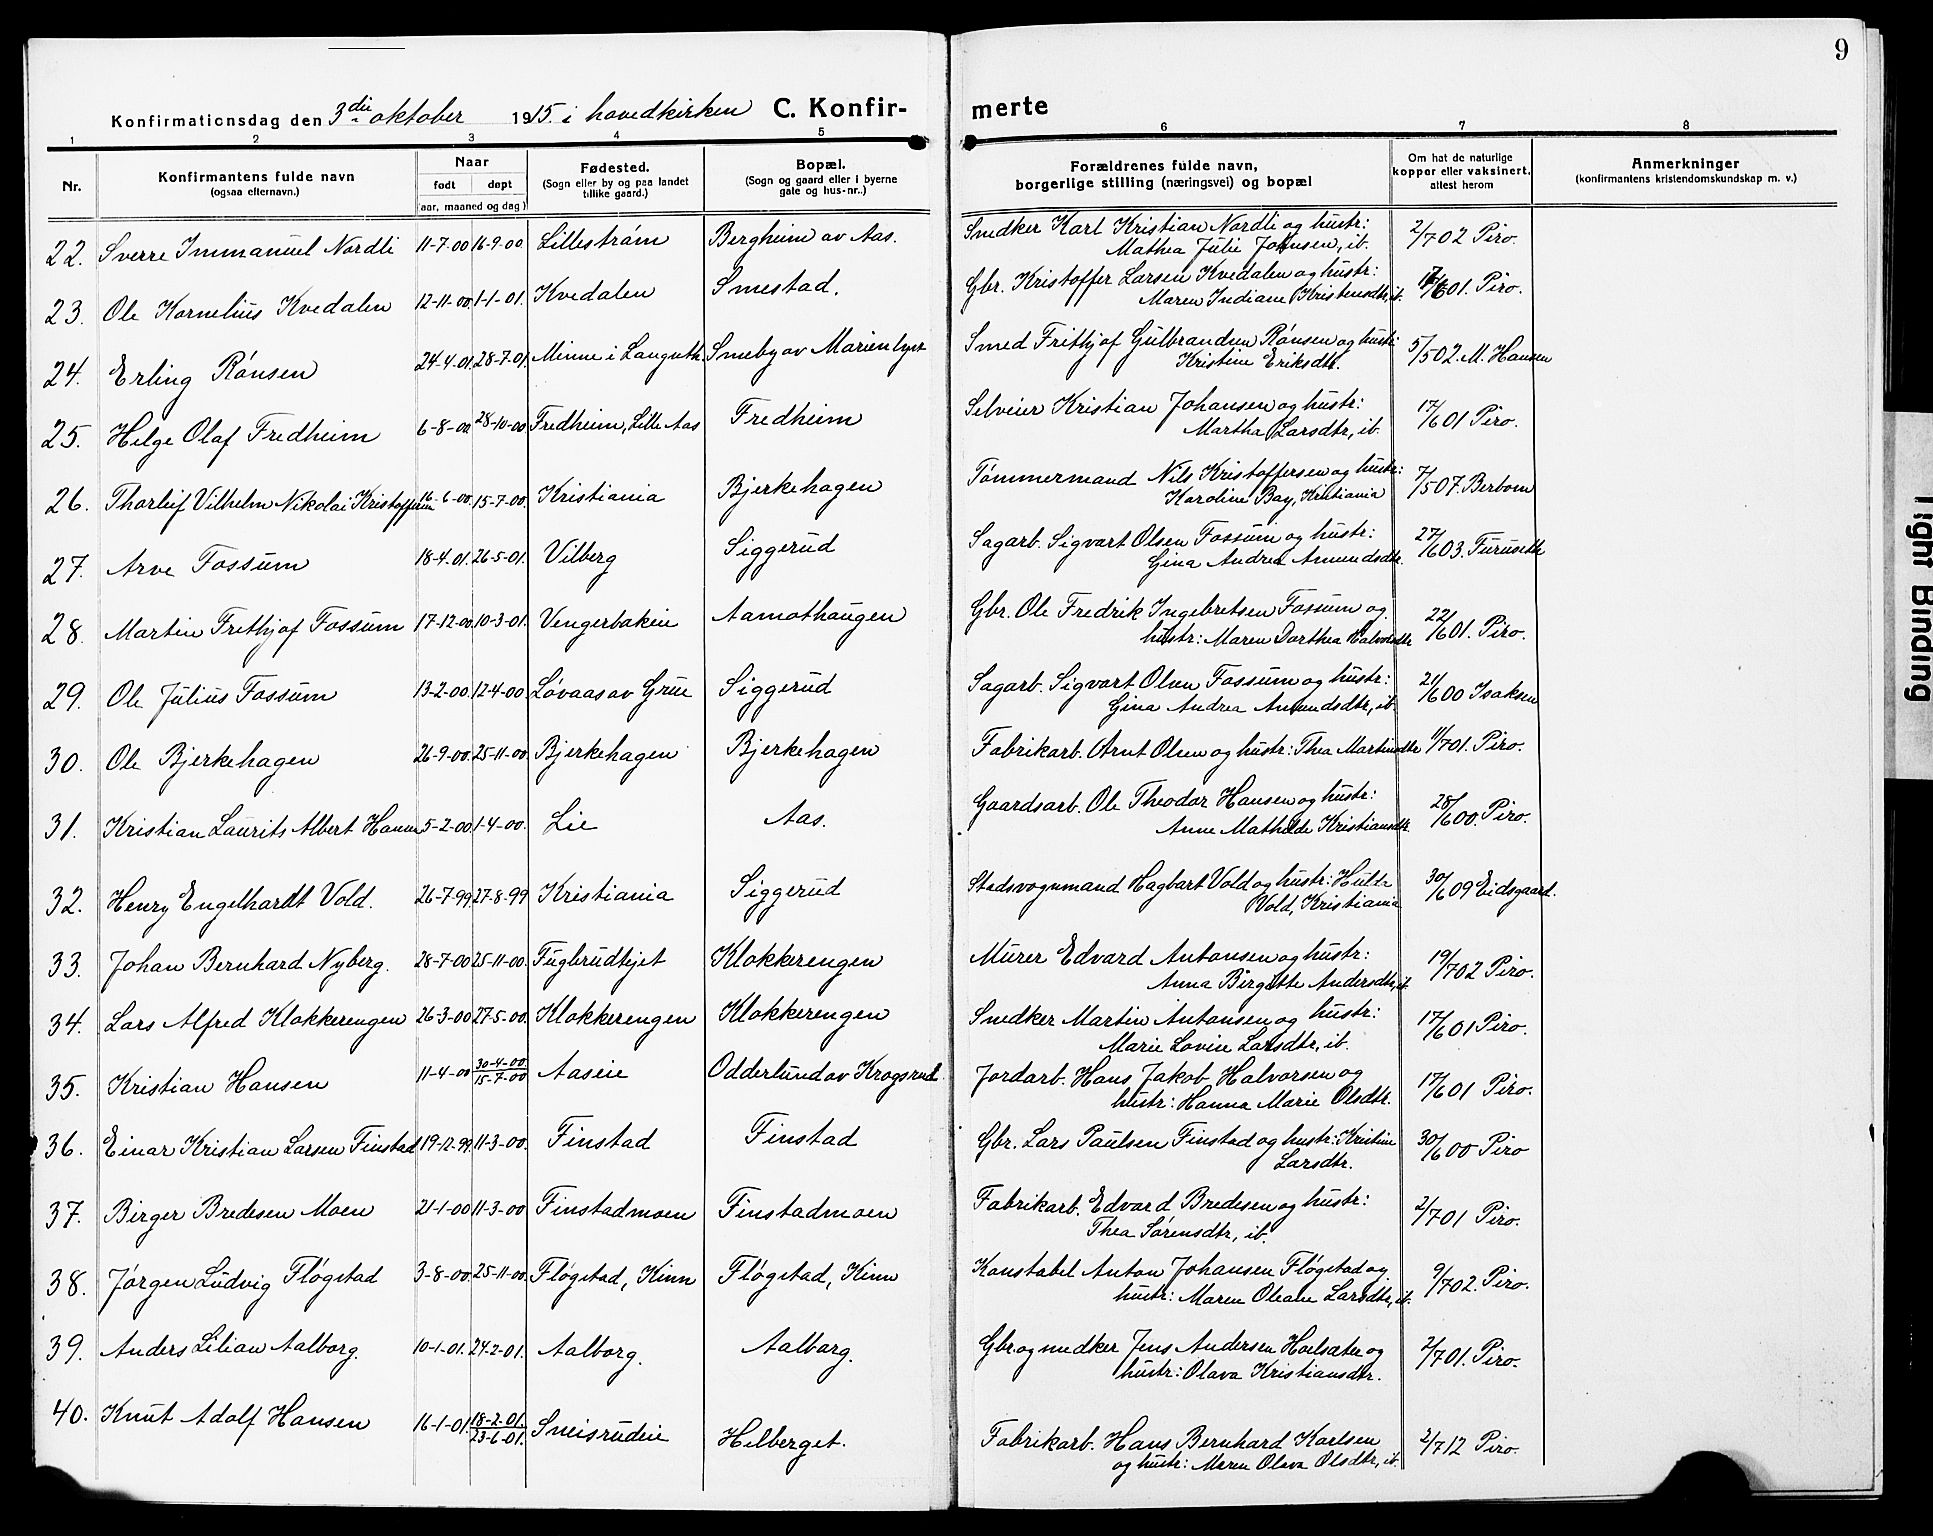 9
Konfirmationsdag den 3die oktober 1915. i hovedkirken C. Konfirmerte
1 2 3 4 5 6 7 8
Nr. Konfirmantens fulde navn (ogsaa efternavn.) Naar født døpt (aar, maaned og dag) Fødested. (Sogn eller by og paa landet tillike gaard.) Bopæl. (Sogn og gaard eller i byerne gate og hus-nr..) Forældrenes fulde navn, borgerlige stilling (næringsvei) og bopæl Om hat de naturlige kopper eller vaksinert, attest herom Anmerkninger (konfirmantens kristendomskundskap m. v.)
22. Sverre Immanuel Nordli 11-7-00 16-9-00. Lillestrøm Bergheim av Aas. Snedker Karl Kristian Nordli og hustr: 2/7 02 Piro.
Mathea Julie Johnsen, ib.
23. Ole Kornelius Kvedalen 12-11-00. 1-1-01. Kvedalen Smestad. Gbr. Kristoffer Larsen Kvedalen og hustr: 17/6 01. Piro.
Maren Indiane Kristensdtr, ib.
24. Erling Rønsen 24-4-01. 28-7-01. Minne i Langseth. Smeby av Marienlyst Smed Frithjof Gulbrandsen Rønsen og hustr: 5/5 02. M. Hansen
Kristine Eriksdtr.
25. Helge Olaf Fredheim 6-8-00 28-10-00 Fredheim, Lille Aas Fredheim Selveier Kristian Johansen og hustr: 17/6 01 Piro.
Martha Larsdtr, ib.
26. Thorleif Vilhelm Nikolai Kristoffersen 16-6-00. 15-7-00. Kristiania Bjerkehagen Tømmermand Nils Kristoffersen og hustr: 7/5 07. Berbom
Karoline Bay, Kristiania
27. Arve Fossum 18-4-01. 26-5-01. Vilberg Siggerud Sagarb. Sigvart Olsen Fossum og hustr: 27/6 03. Furuseth
Gina Andrea Amundsdtr.
28. Martin Frithjof Fossum 17-12-00. 10-3-01. Vengerbakeie Aamothaugen Gbr. Ole Fredrik Ingebretsen Fossum og 22/6 01. Piro.
hustr: Maren Dorthea Halvorsdtr
29. Ole Julius Fossum 13-2-00. 12-4-00. Løvaas av Grue Siggerud Sagarb. Sigvart Olsen Fossum og hustr: 21/6 00 Isaksen
Gina Andrea Amundsdtr, ib.
30. Ole Bjerkehagen 26-9-00. 25-11-00. Bjerkehagen Bjerkehagen Fabrikarb. Arnt Olsen og hustr: Thea Martinsdtr 11/7 01. Piro.
31. Kristian Laurits Albert Hansen 5-2-00. 1-4-00. Lie Aas. Gaardsarb. Ole Theodor Hansen og hustr: 28/6 00. Piro.
Anne Mathilde Kristiansdtr.
32. Henry Engelhardt Vold. 26-7-99 27-8-99 Kristiania Siggerud Stadsvognmand Hagbart Vold og hustr: Hulda 30/6 09 Eidsgaard.
Vold, Kristiania
33. Johan Bernhard Nyberg. 28-7-00 25-11-00. Fuglerudtejet Klokkerengen Murer Edvard Antonsen og hustr: 19/7 02 Piro.
Anna Birgitte Andersdtr, ib.
34. Lars Alfred Klokkerengen 26-3-00 27-5-00. Klokkerengen Klokkerengen Snedker Martin Antonsen og hustr: 17/6 01 Piro.
Marie Lovise Larsdtr, ib.
35. Kristian Hansen 11-4-00 30-4-00 15-7-00 Aaseie Odderlund av Krogsrud. Jordarb. Hans Jakob Halvorsen og 17/6 01 Piro.
hustr: Hanna Marie Olsdtr.
36. Einar Kristian Larsen Finstad 19-12-99. 11-3-00. Finstad Finstad Gbr. Lars Paulsen Finstad og hustr: Kristine 30/6 00 Piro
Larsdtr.
37. Birger Bredesen Moen 21-1-00 11-3-00 Finstadmoen Finstadmoen Fabrikarb. Edvard Bredesen og hustr: 2/7 01 Piro.
Thea Sørensdtr, ib.
38. Jørgen Ludvig Fløgstad 3-8-00. 25-11-00. Fløgstad, Kinn Fløgstad, Kinn Konstabel Anton Johansen Fløgstad og 9/7 02. Piro.
hustr: Maren Oleane Larsdtr, ib.
39. Anders Lilian Aalborg. 10-1-01. 24-2-01. Aalborg. Aalborg. Gbr. og snedker Jens Andersen Hoelsæter og 2/7 01. Piro.
hustr: Olava Kristiansdtr.
40. Knut Adolf Hansen 16-1-01. 18-2-01. 23-6-01. Sneisrudeie Helberget. Fabrikarb. Hans Bernhard Karlsen 2/7 12 Piro.
og hustr: Maren Olava Olsdtr, ib.
Tight Binding